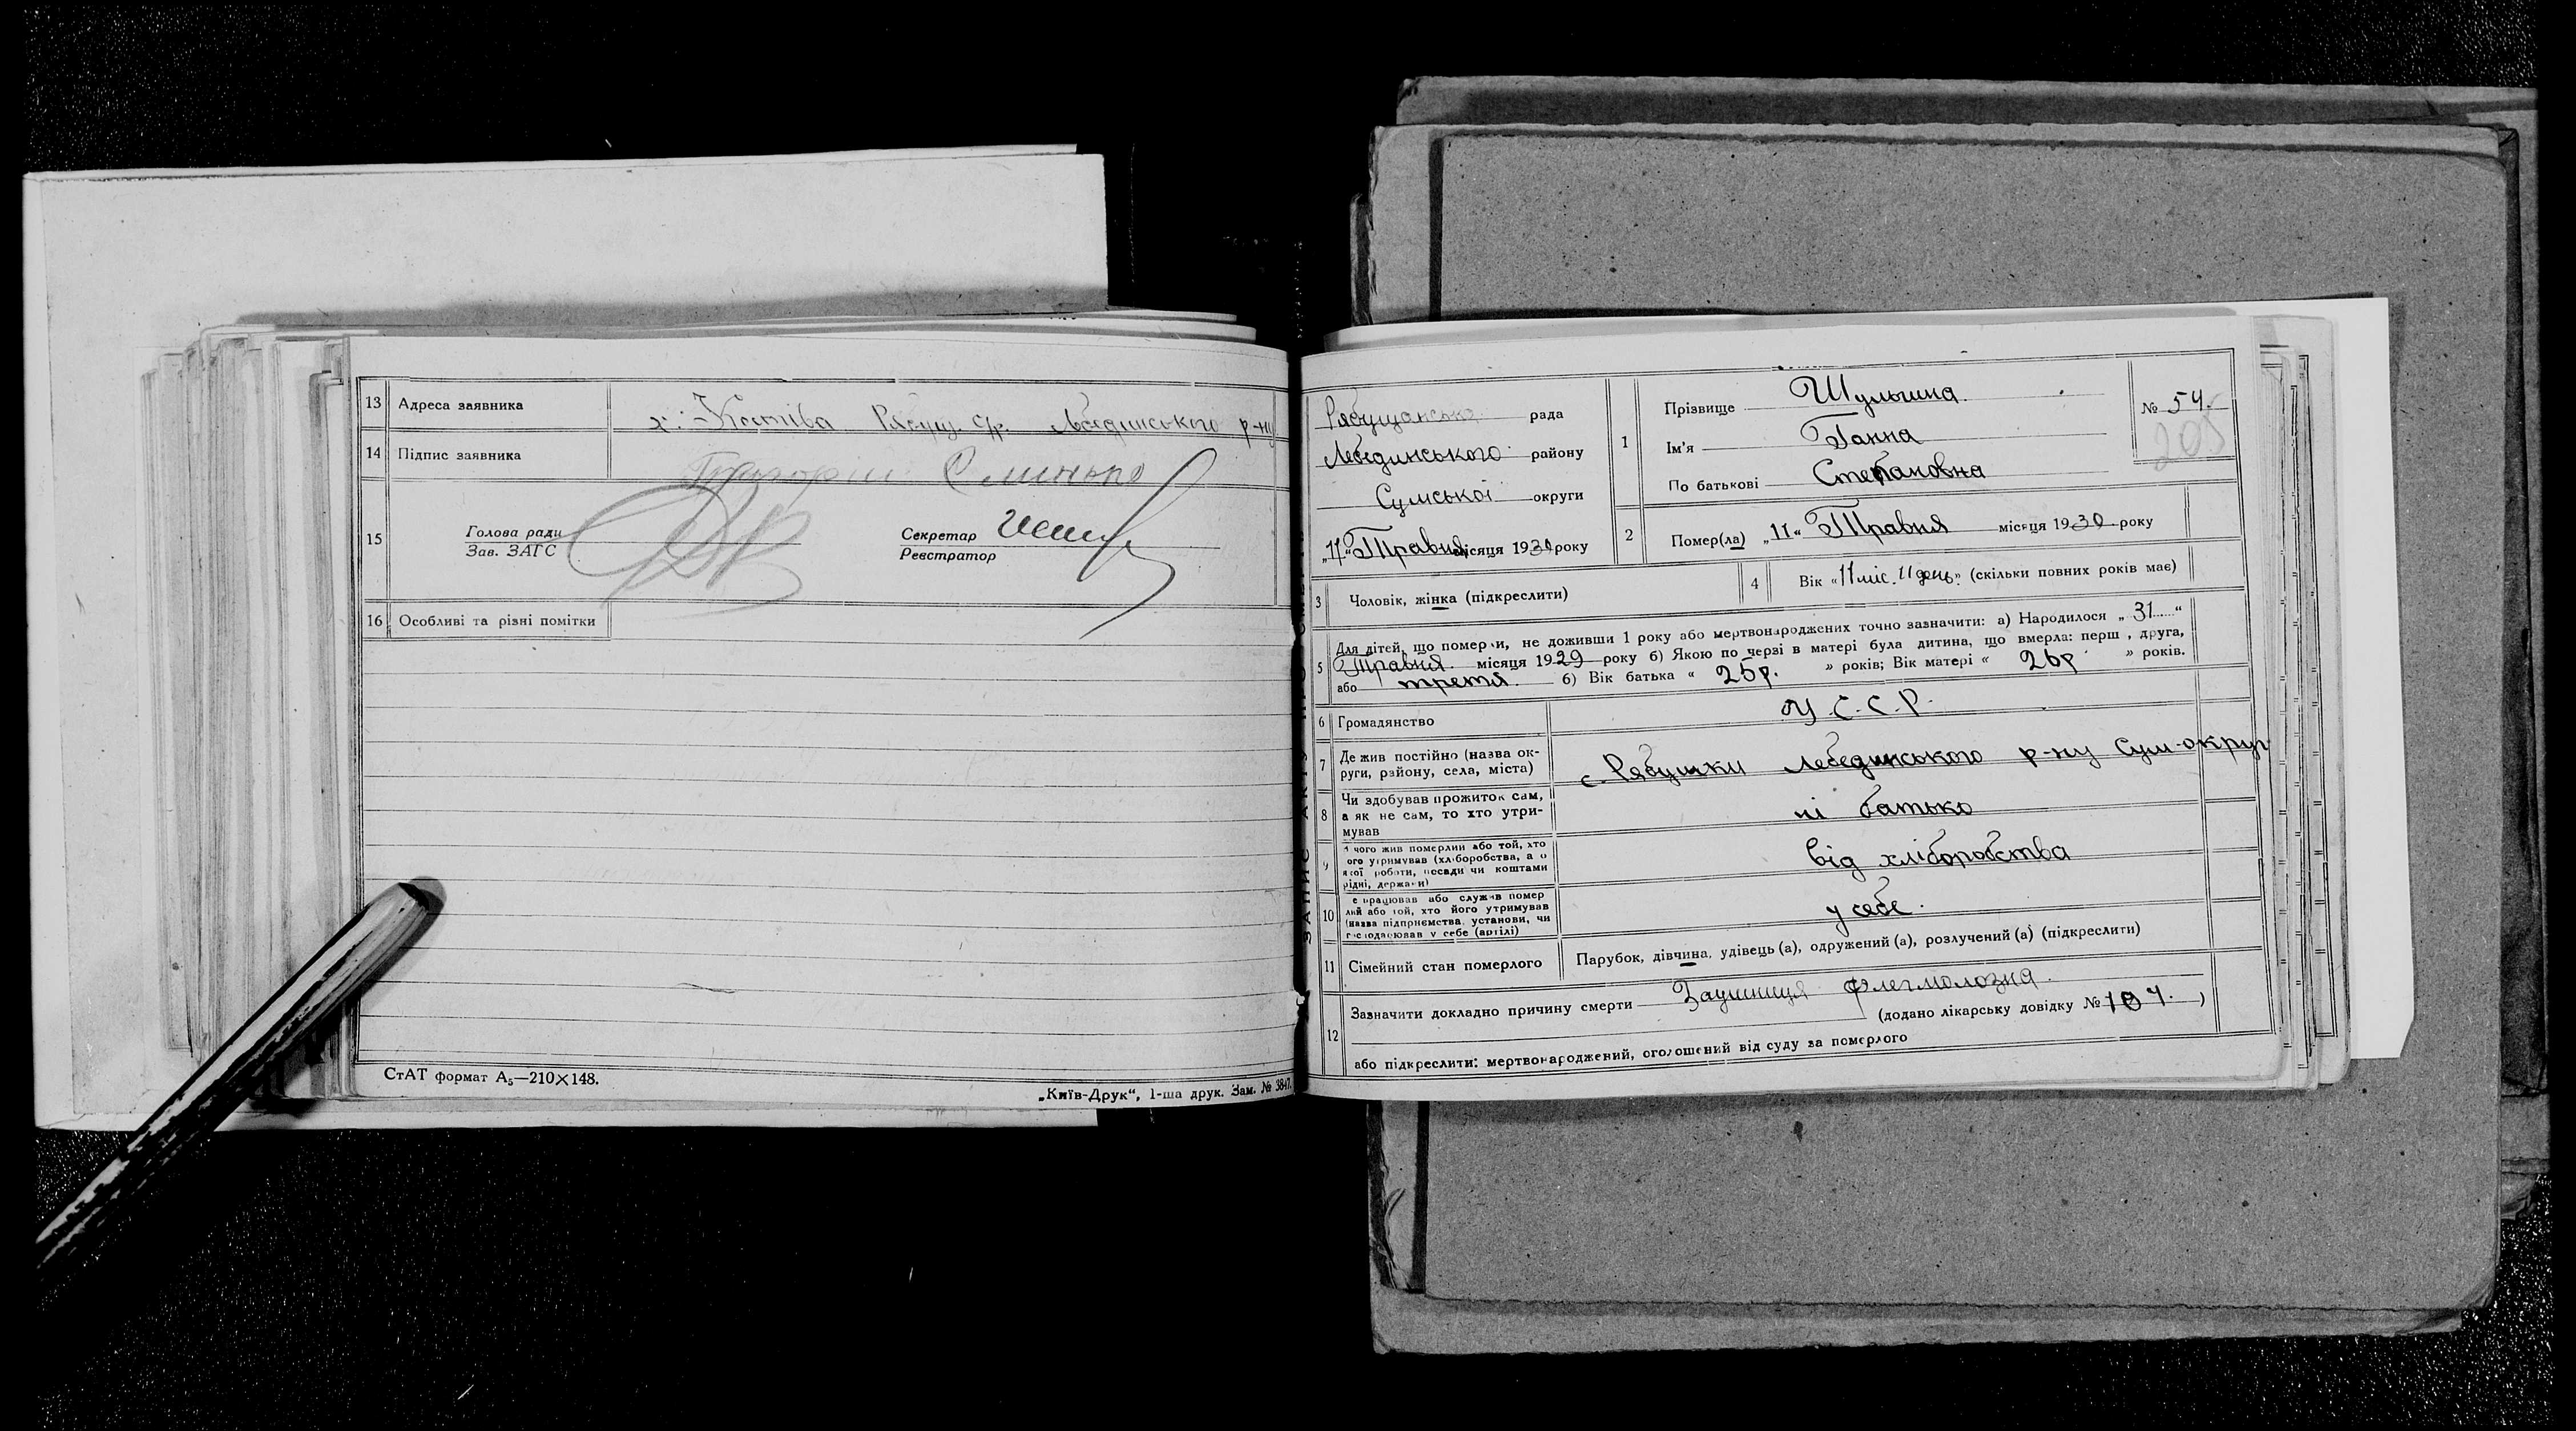 13 Адреса заявника х. Костіва Рябуш. с/р. Лебединського р-ну
14 Підпис заявника
15 Голова ради
Зав. ЗАГС
Секретар
Реєстратор
16 Особливі та різні помітки
СтАТ формат А₅—210×148.
„Київ-Друк“, 1-ша друк. Зам. № 3847.
Рябушанська рада
Лебединського району
Сумської округи
„11“ Травня місяця 1930 року
1 Прізвище Шульгина
Ім'я Ганна
По батькові Степановна
№ 54.
205
2 Помер(ла) „11“ Травня місяця 1930 року
3 Чоловік, жінка (підкреслити)
4 Вік «11 міс. 11 день» (скільки повних років має)
5 Для дітей, що померли, не доживши 1 року або мертвонароджених точно зазначити: а) Народилося „31“
Травня місяця 1929 року б) Якою по черзі в матері була дитина, що вмерла: перш , друга,
або третя. б) Вік батька « 25р. » років; Вік матері « 26р » років.
6 Громадянство У.С.С.Р.
7 Де жив постійно (назва ок-
руги, району, села, міста) с. Рябушки Лебединського р-ну Сум-округ
8 Чи здобував прожиток сам,
а як не сам, то хто утри-
мував ні батько
9 З чого жив померлий або той, хто
його утримував (хліборобства, а о
якої роботи, посади чи коштами
рідні, держави) від хліборобства
10 Де працював або служив помер
лий або той, хто його утримував
(назва підприємства, установи, чи
господарював у себе (артілі) у себе.
11 Сімейний стан померлого Парубок, дівчина, удівець (а), одружений (а), розлучений (а) (підкреслити)
12 Зазначити докладно причину смерти флегмолозна.
(додано лікарську довідку № 104. )
або підкреслити: мертвонароджений, оголошений від суду за померлого